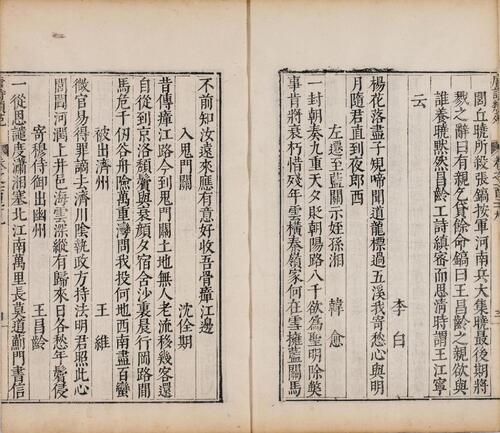 閭丘曉所殺張鎬按軍河南兵大集曉最後期將
戮之辭曰有親乞貸餘命鎬曰王昌齡之親欲與
誰養曉默然昌齡工詩縝密而思清時謂王江寧
云
李白
楊花落盡子規啼聞道龍標過五溪我寄愁心與明
月隨君直到夜郎西
左遷至藍關示姪孫湘 韓愈
一封朝奏九重天夕貶朝陽路八千欲為聖明除獘
事肯將衰朽惜殘年雲橫秦嶺家何在雪擁藍關馬
不前知汝遠來應有意好收吾骨瘴江邊
入鬼門關 沈佺期
昔傳瘴江路今到鬼門關土地無人老流移幾客還
自從到京洛頹鬢與衰顏夕宿含沙裏晨行岡路間
馬危千仞谷舟險萬重灣問我投何地西南盡百蠻
被出濟州 王維
微官易得罪謫去濟川陰執政方持法明君照此心
閭閻河潤上井邑海雲深縱有歸來日各愁年鬢侵
寄穆侍御出幽州 王昌齡
一從恩譴度瀟湘塞北江南萬里長莫道薊門書信